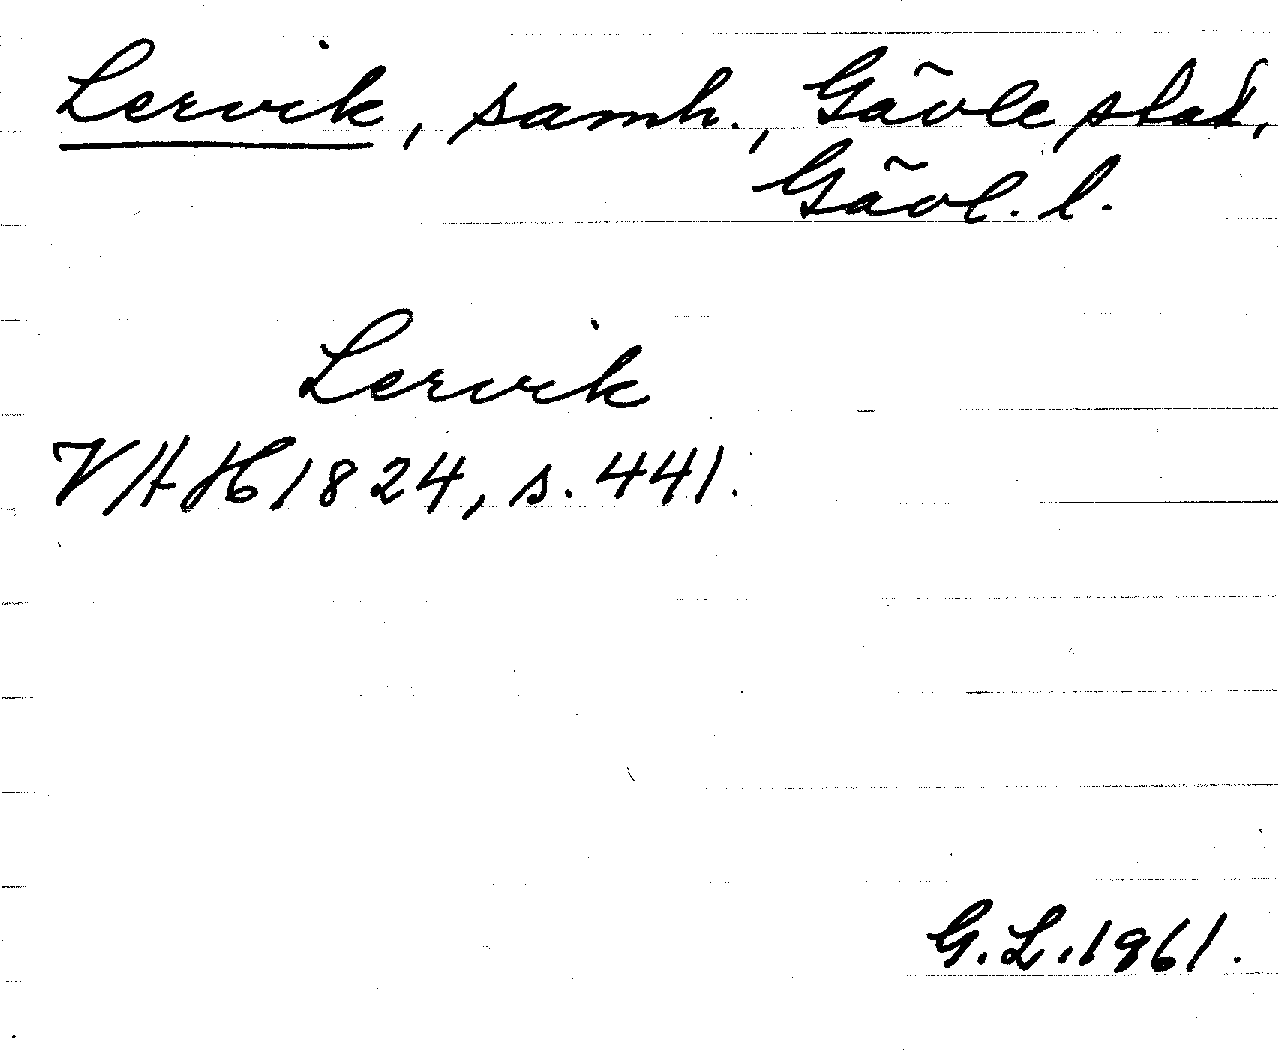 Lervik, samh., Gävle stad,
Gävl. l.
Lervik
VHH 1824, s. 441.
G.L. 1961.